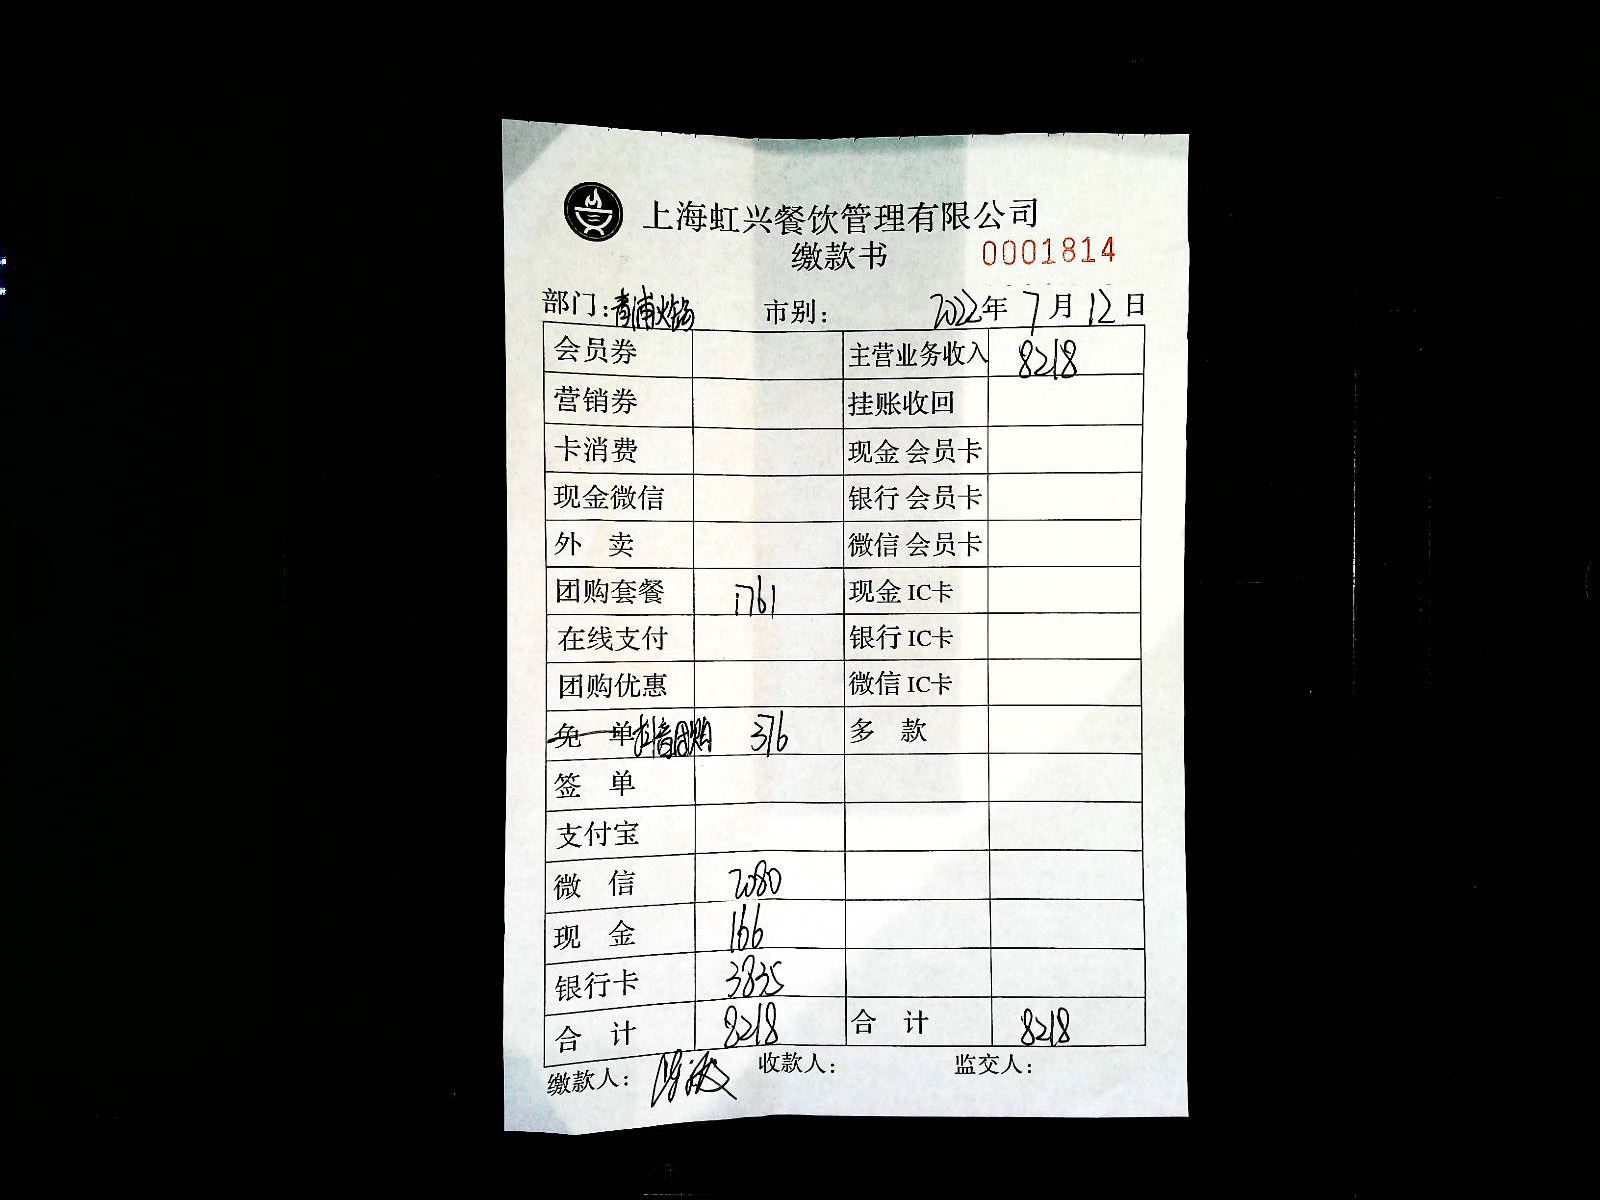 上海虹兴餐饮管理有限公司
缴款书 0001814
部门:青浦火锅 市别: 2022年 7月 12日
会员券 主营业务收入 8218
营销券 挂账收回
卡消费 现金 会员卡
现金微信 银行 会员卡
外 卖 微信 会员卡
团购套餐 1761 现金 IC卡
在线支付 银行 IC卡
团购优惠 微信 IC卡
免 单 抖音团购 376 多 款
签 单
支付宝
微 信 2080
现 金 166
银行卡 3835
合 计 8218 合 计 8218
缴款人: 收款人: 监交人: